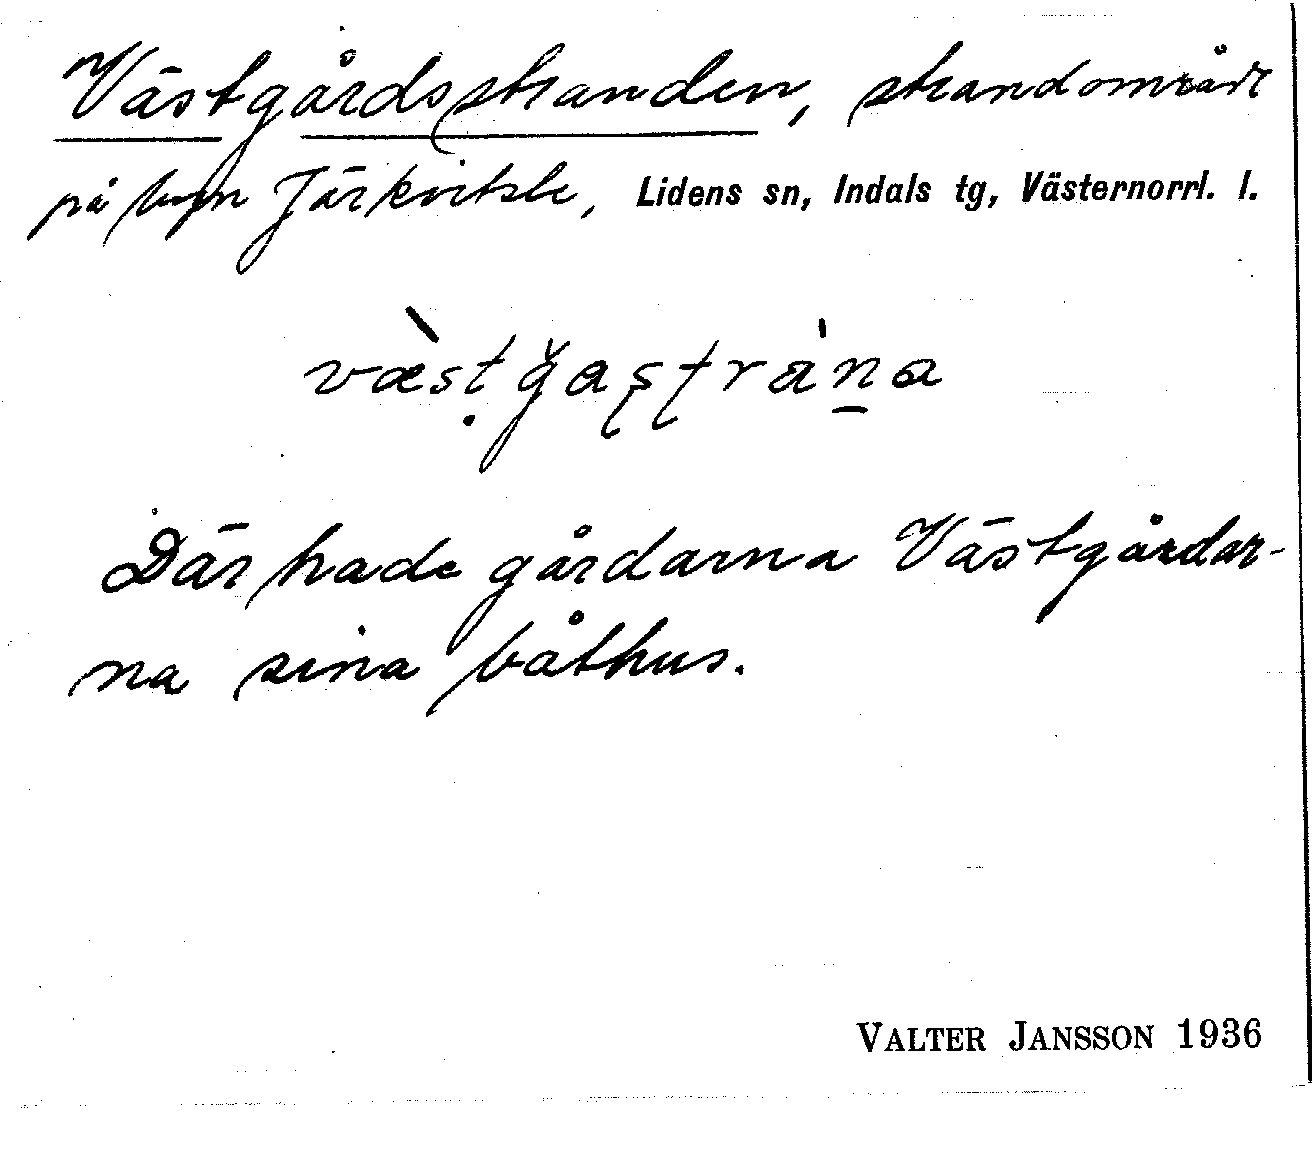 Västgårdsstranden, strandområde
på byn Järkvitsle, Lidens sn, Indals tg, Västernorrl. l.
væ̀sṭǧaʂʈràṉa
Där hade gårdarna Västgårdar-
na sina båthus.
VALTER JANSSON 1936